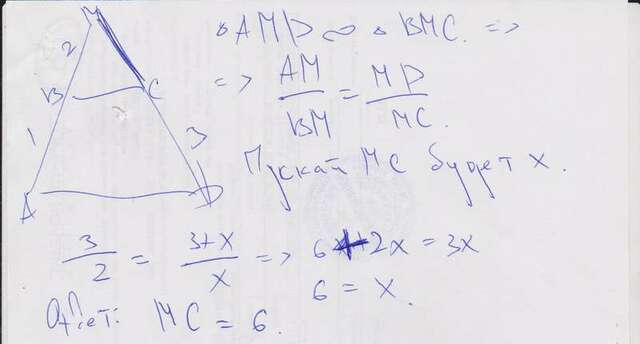 M
2
B
C
1
3
A
D
△AMD ∞ △BMC. =>
=> AM/BM = MD/MC.
Пускай MC будет x.
3/2 = 3+x/x => 6+2x = 3x
6 = x.
Ответ: MC = 6.